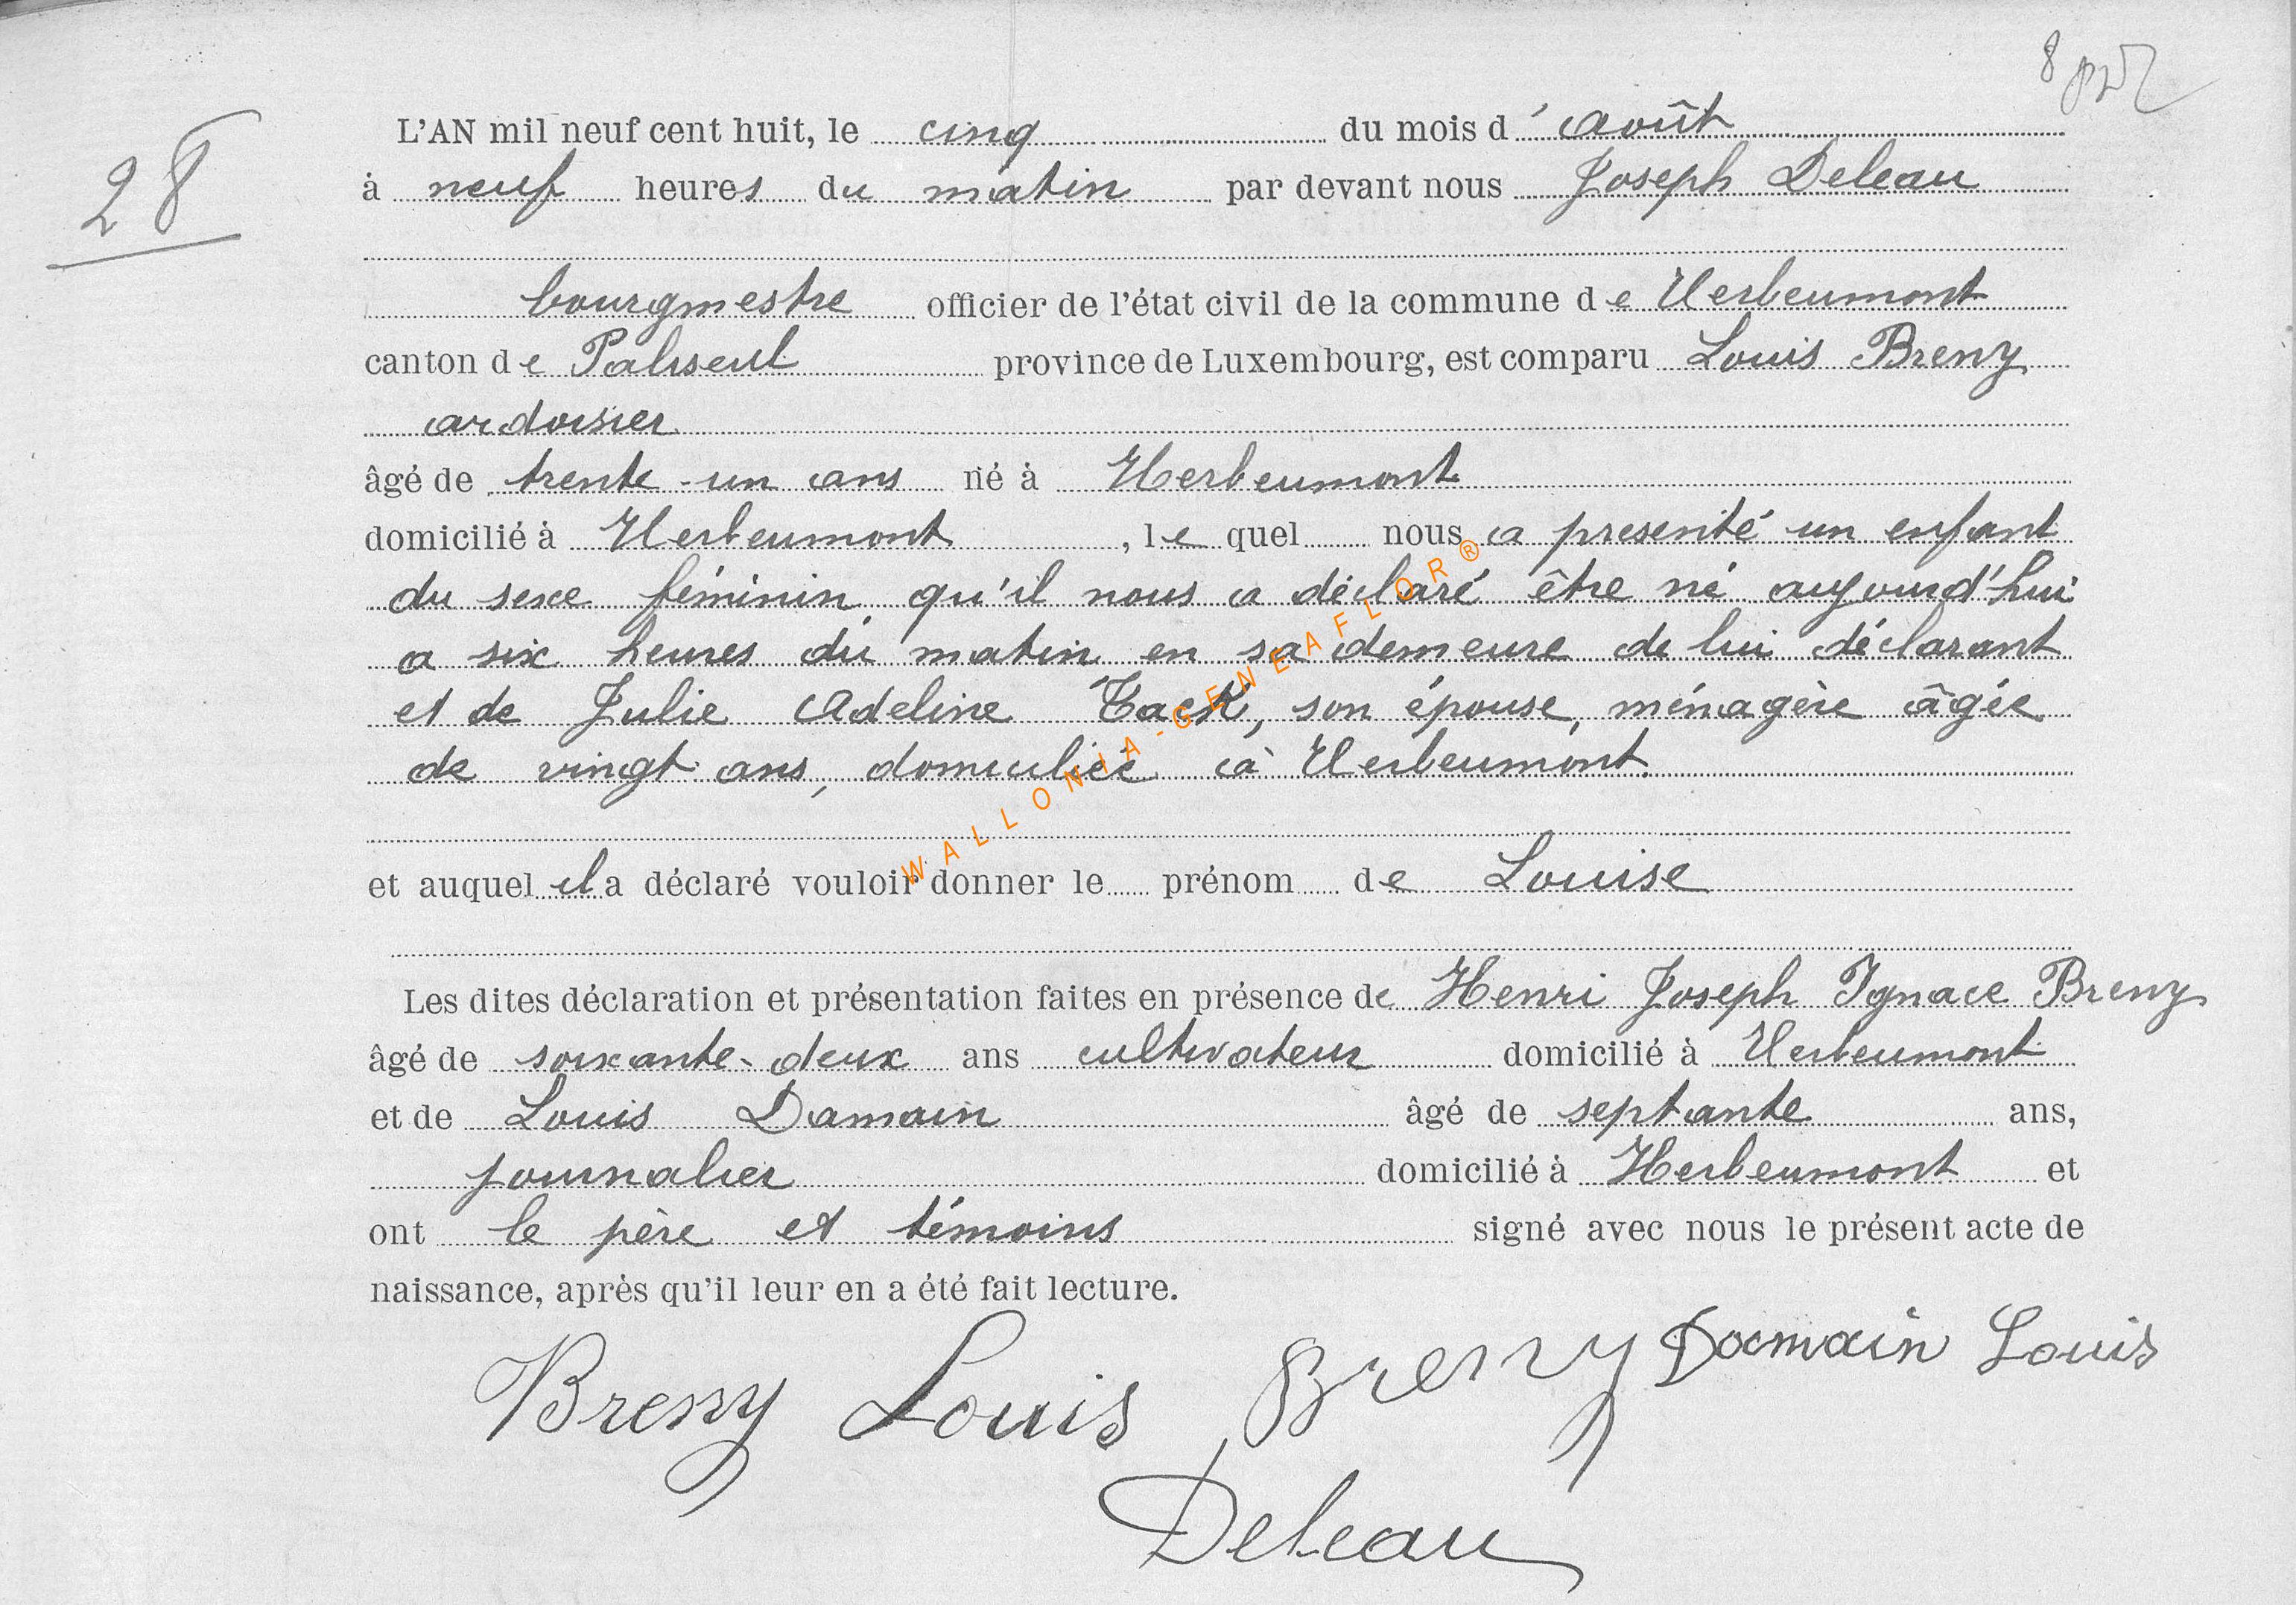 28
L'AN mil neuf cent huit, le cinq du mois d'août
à neuf heures du matin par devant nous Joseph Deleau
bourgmestre officier de l'état civil de la commune de Herbeumont
canton de Paliseul province de Luxembourg, est comparu Louis Breny
ardoisier
âgé de trente-un ans né à Herbeumont
domicilié à Herbeumont, lequel nous a presenté un enfant
du sexe féminin qu'il nous a déclaré être né aujourd'hui
a six heures du matin en sa demeure de lui déclarant
et de Julie Adeline Back, son épouse, ménagère âgée
de vingt ans, domiciliée à Herbeumont.
WALLONIA-GENEAFLOR®
et auquel il a déclaré vouloir donner le prénom de Louise
Les dites déclaration et présentation faites en présence de Henri Joseph Ignace Breny
âgé de soixante-deux ans cultivateur domicilié à Herbeumont
et de Louis Damain âgé de septante ans,
journalier domicilié à Herbeumont et
ont le père et témoins signé avec nous le présent acte de
naissance, après qu'il leur en a été fait lecture.
Breny Louis Breny Damain Louis
Deleau